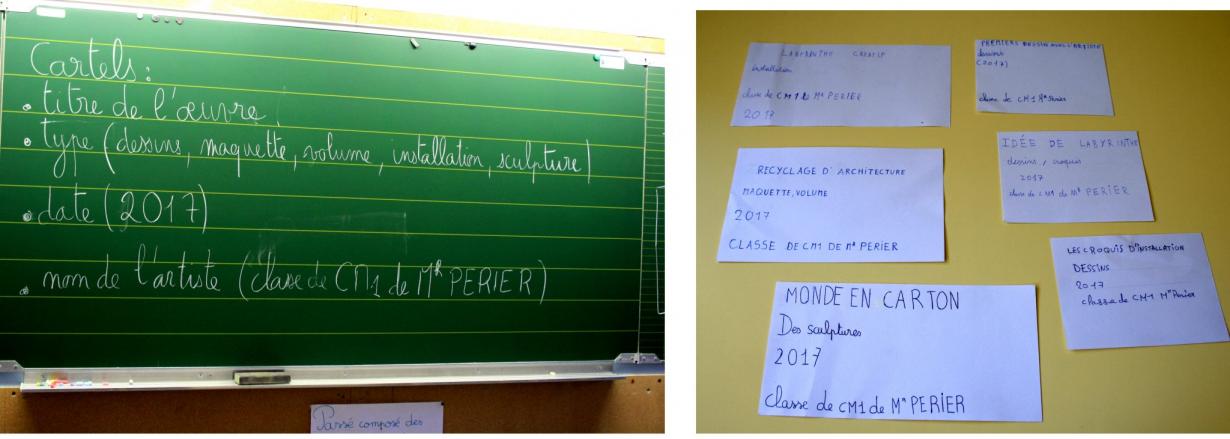 Cartels:
• titre de l'œuvre.
• type (dessins, maquette, volume, installation, sculpture)
• date (2017)
• nom de l'artiste (classe de CM1 de Mr PERIER)
Passé composé des
LABYRINTHE CREATIF
installation
classe de CM1 de Mr PERIER
2017
PREMIERS DESSIN AVEC L'ARTISTE
dessins
(2017)
classe de CM1 Mr Perier
RECYCLAGE D'ARCHITECTURE
MAQUETTE, VOLUME
2017
CLASSE DE CM1 DE Mr PERIER
IDÉE DE LABYRINTHE
dessins, croquis
2017
classe de CM1 de Mr PERIER
LES CROQUIS D'INSTALLATION
DESSINS
2017
classe de CM1 Mr Perier
MONDE EN CARTON
Des sculptures
2017
Classe de CM1 de Mr PERIER